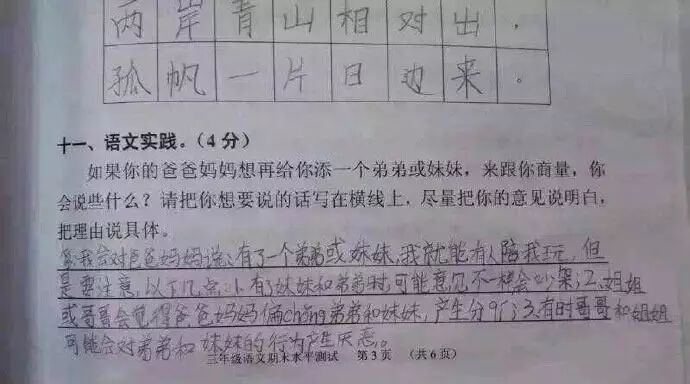 两岸青山相对出。
孤帆一片日边来。
十一、语文实践。(4分)
如果你的爸爸妈妈想再给你添一个弟弟或妹妹，来跟你商量，你
会说些什么？请把你想要说的话写在横线上，尽量把你的意见说明白，
把理由说具体。
我会对爸爸妈妈说:有了一个弟弟或妹妹,我就能有人陪我玩,但
是要注意以下几点:1、有了妹妹和弟弟时,可能意见不一样会吵架;2、姐姐
或哥哥会觉得爸爸妈妈偏chǒng弟弟和妹妹,产生分qí;3、有时哥哥和姐姐
可能会对弟弟和妹妹的行为产生厌恶。
三年级语文期末水平测试 第3页 (共6页)